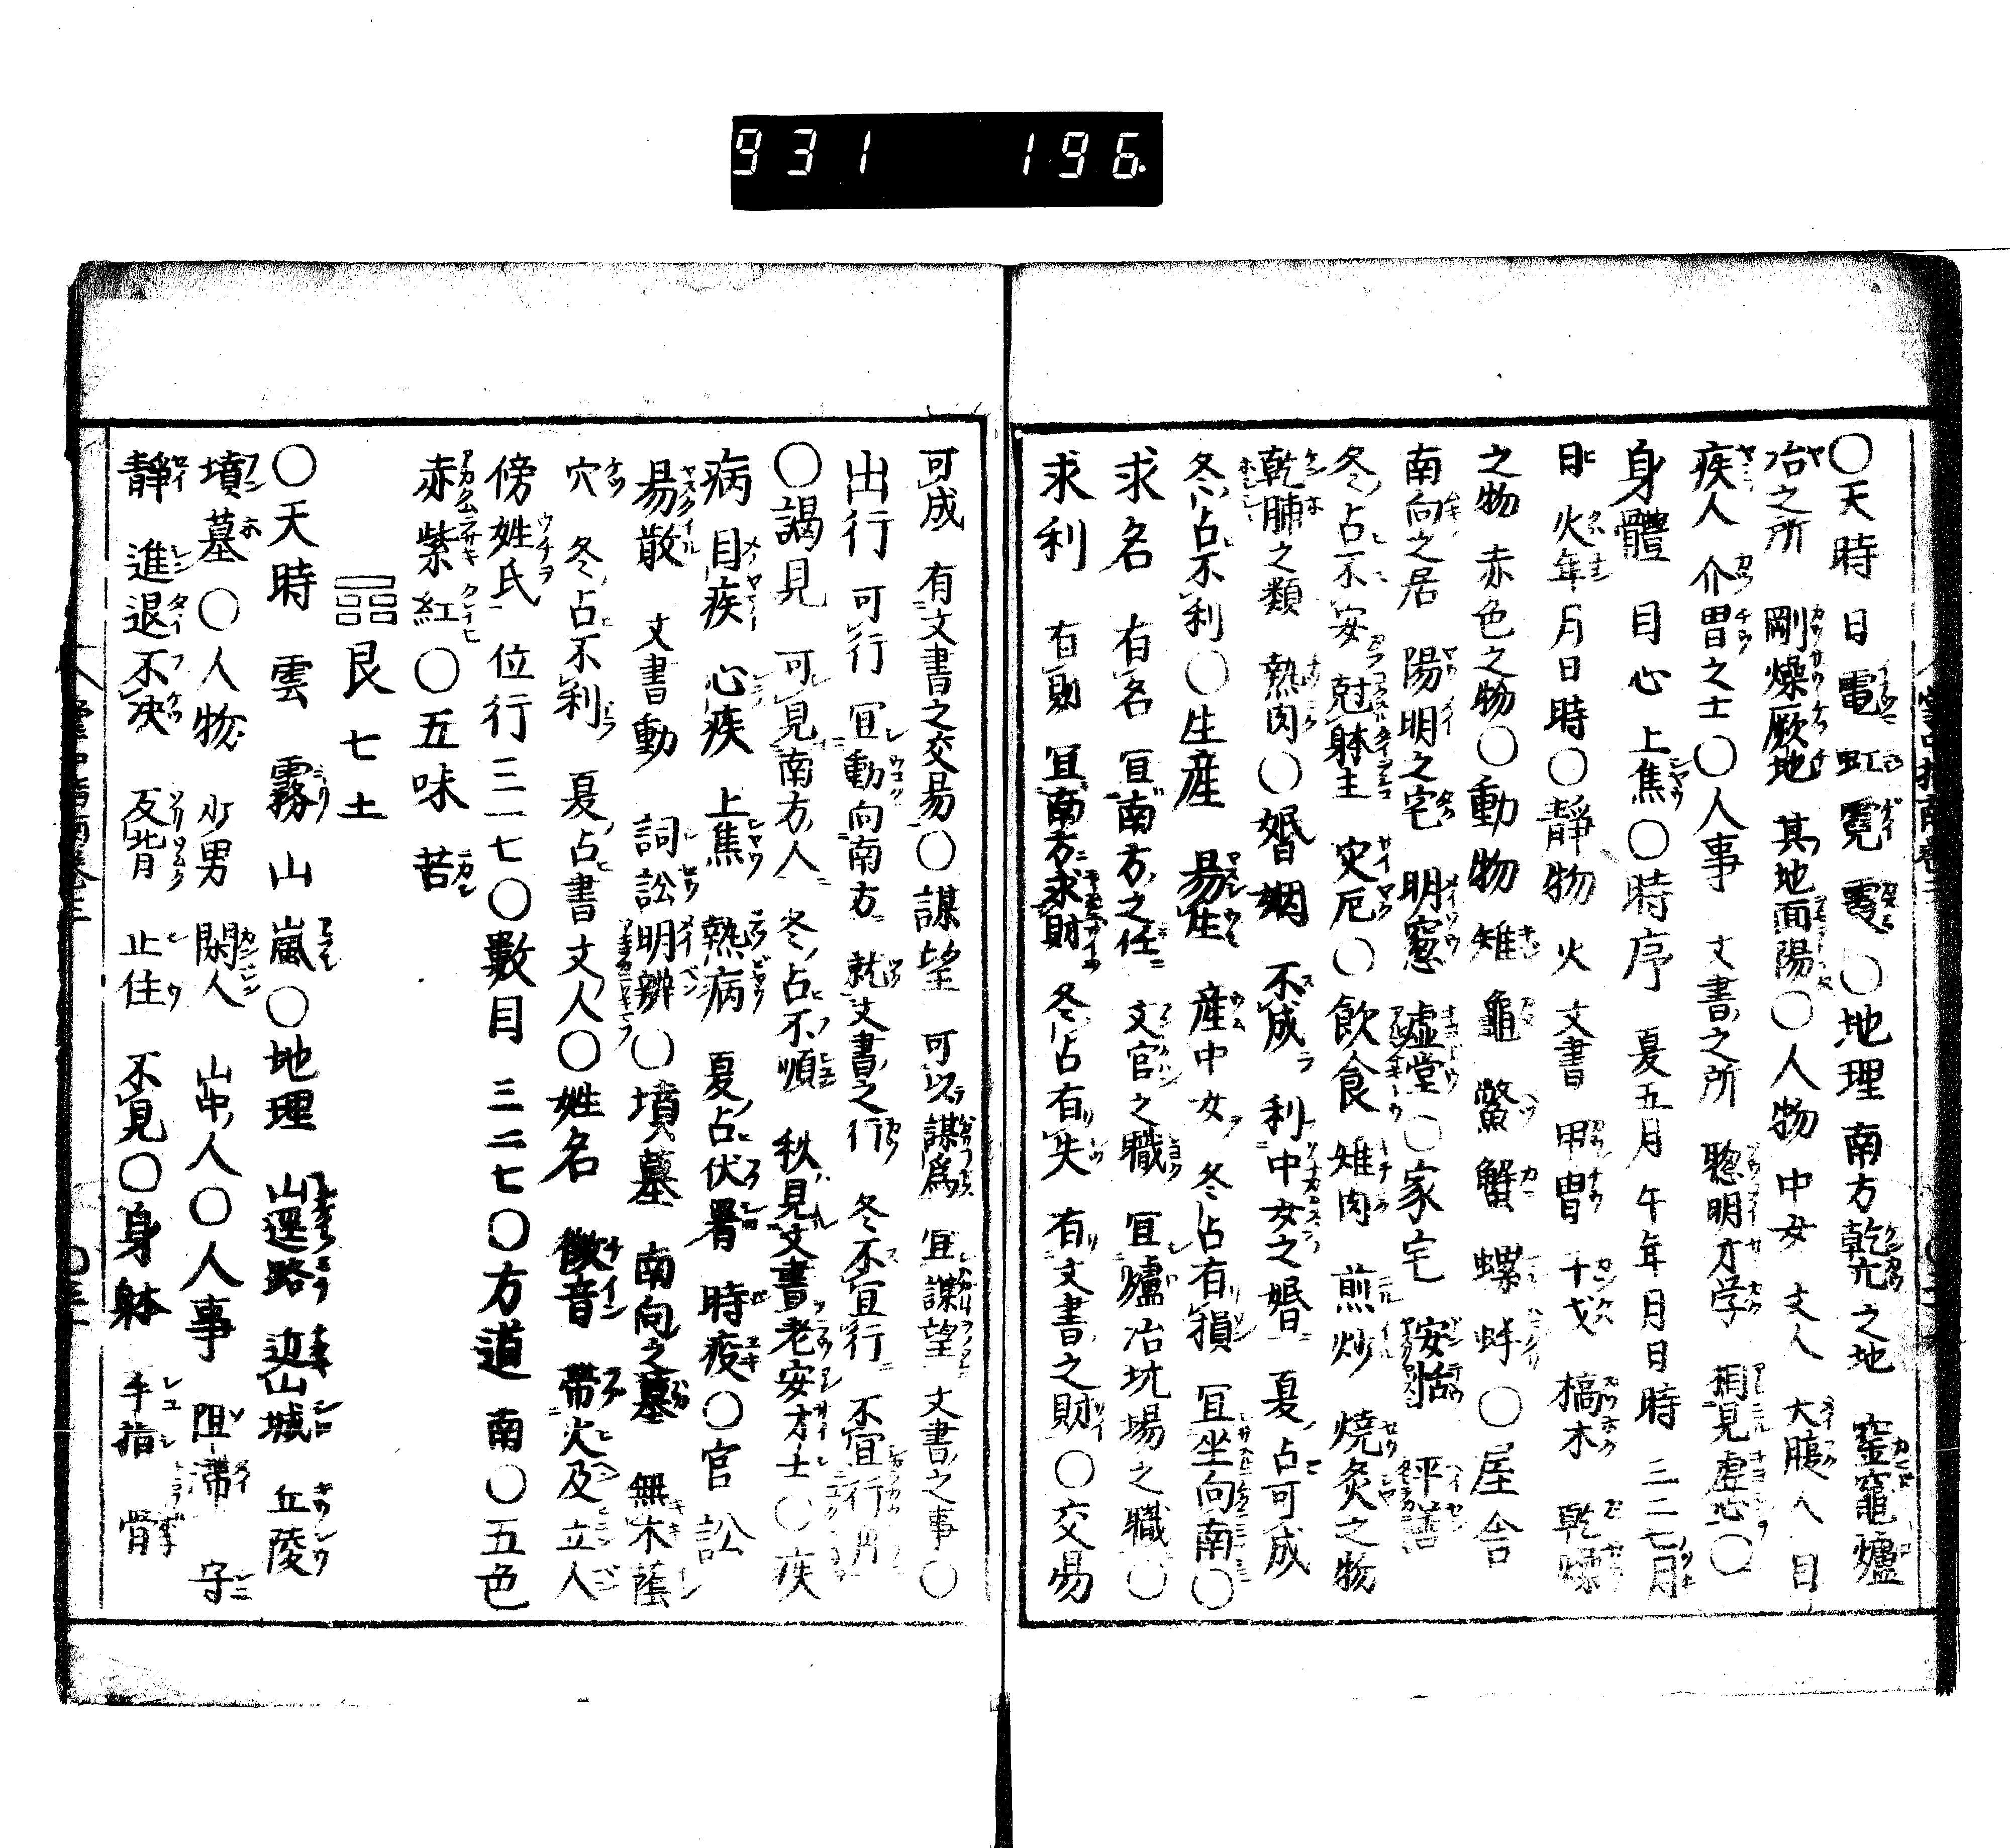 931 196.
〇天時 日 電 虹 霓 霞 〇地理 南方 乾亢之地 窰竈 爐
冶之所 剛燥厥地 其地面陽〇人物 中女 文人 大腹人 目
疾人 介冑之士〇人事 文書之所 聰明才学 相見虚心〇
身體 目 心 上焦〇時序 夏五月 午年月日時 三二七月
日 火年月日時〇靜物 火 文書 甲冑 干戈 槁木 乾燥
之物 赤色之物〇動物 雉 龜 鱉 蟹 螺 蚌 〇屋舎
南向之居 陽明之宅 明窓 虚堂〇家宅 安恬 平善
冬占不安 尅躰主 灾厄〇飲食 雉肉 煎炒 燒炙之物
乾脯之類 熱肉〇婚姻 不成 利中女之婚 夏占可成
冬占不利〇生産 易生 産中女 冬占有損 宜坐向南〇
求名 有名 宜南方之任 文官之職 宜爐冶坑場之職〇
求利 有財 宜南方求財 冬占有失 有文書之財〇交易
可成 有文書之交易〇謀望 可以謀爲 宜謀望 文書之事〇
出行 可行 宜動向南方 就文書之行 冬不宜行 不宜行舟
〇謁見 可見南方人 冬占不順 秋見文書老安才士〇疾
病 目疾 心疾 上焦 熱病 夏占伏暑 時疫〇官訟
易散 文書動 詞訟明辨〇墳墓 南向之墓 無木蔭
穴 冬占不利 夏占書文人〇姓名 徴音 帶火及立人
傍姓氏 位行三二七〇數目 三二七〇方道 南〇五色
赤紫紅〇五味 苦
艮七土
〇天時 雲 霧 山嵐〇地理 山逕路 近山城 丘陵
墳墓〇人物 少男 閑人 山中人〇人事 阻滯 守
靜 進退不决 反背 止住 不見〇身躰 手指 骨